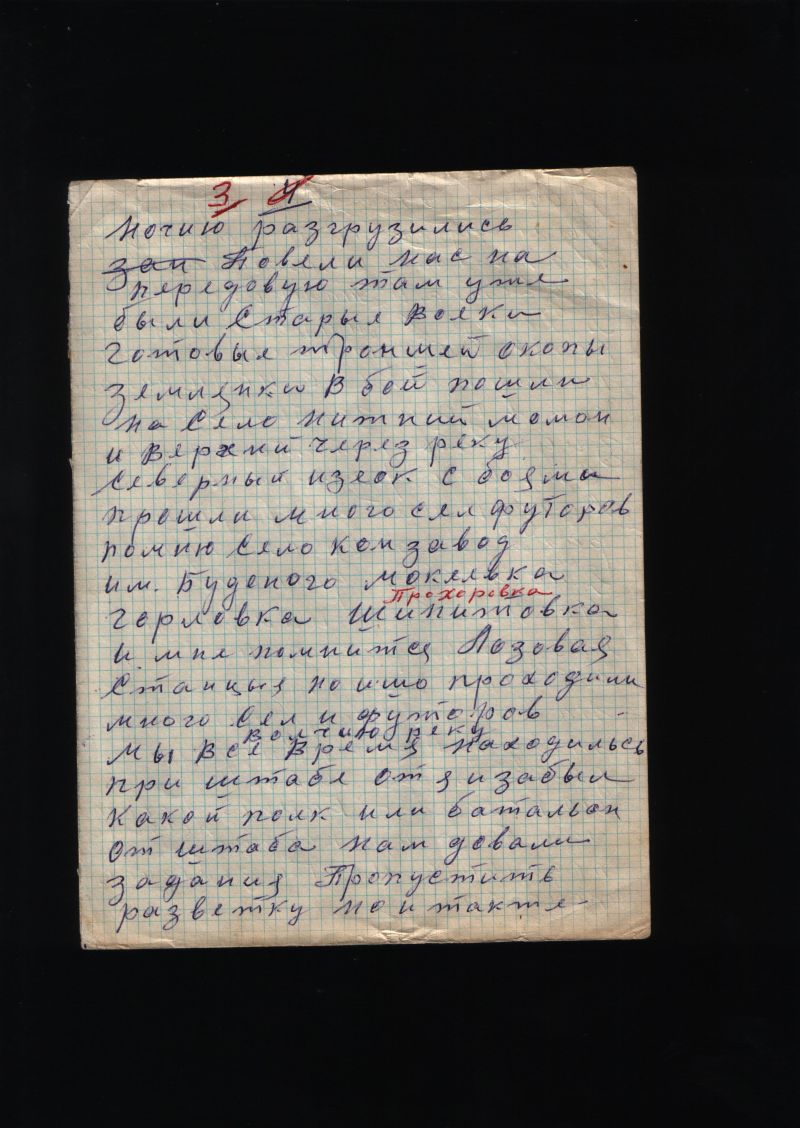 3 4
ночию разгрузились
зап Повели нас на
передовую там уже
были Старые Вояки
готовые траншей окопы
землянки В бой пошли
на Село нижний момон
и Верхний через реку
Северный изеок с боями
прошли много сел футоров
помню Село конзавод
им. Буденого мокеевка
Прохоровка
Горловка Шипитовка
и мне помнится Лозовая
Станцыя но ишо проходили
много Сел и футоров
волчию реку
мы Все Время находильсь
при штабе от я и забыл
Какой полк или батальон
от штаба нам довали
задания Пропустить
разветку но и также